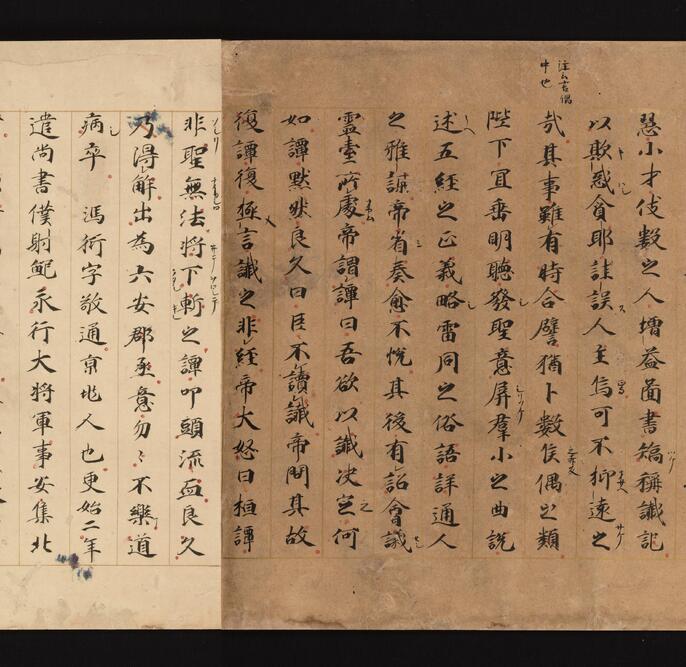 注云言偶
中也
慧小才伎數之人増益啚書矯稱讖記
以欺惑貪耶詿誤人主焉可不抑遠之
哉其事雖有時合譬猶卜數隻偶之類
陛下宜垂明聽發聖意屏羣小之曲說
述五經之正義略雷同之俗語詳通人
之雅謀帝省奏愈不悅其後有詔會議
靈臺所處帝謂譚曰吾欲以讖决定何
如譚默然良久曰臣不讀讖帝問其故
復譚復極言讖之非經帝大怒曰桓譚
非聖無法將下斬之譚叩頭流血良久
乃得解出為六安郡丞意勿〻不樂道
病卒 馮衍字敬通京兆人也更始二年
遣尚書僕射鮑永行大將軍事安集北